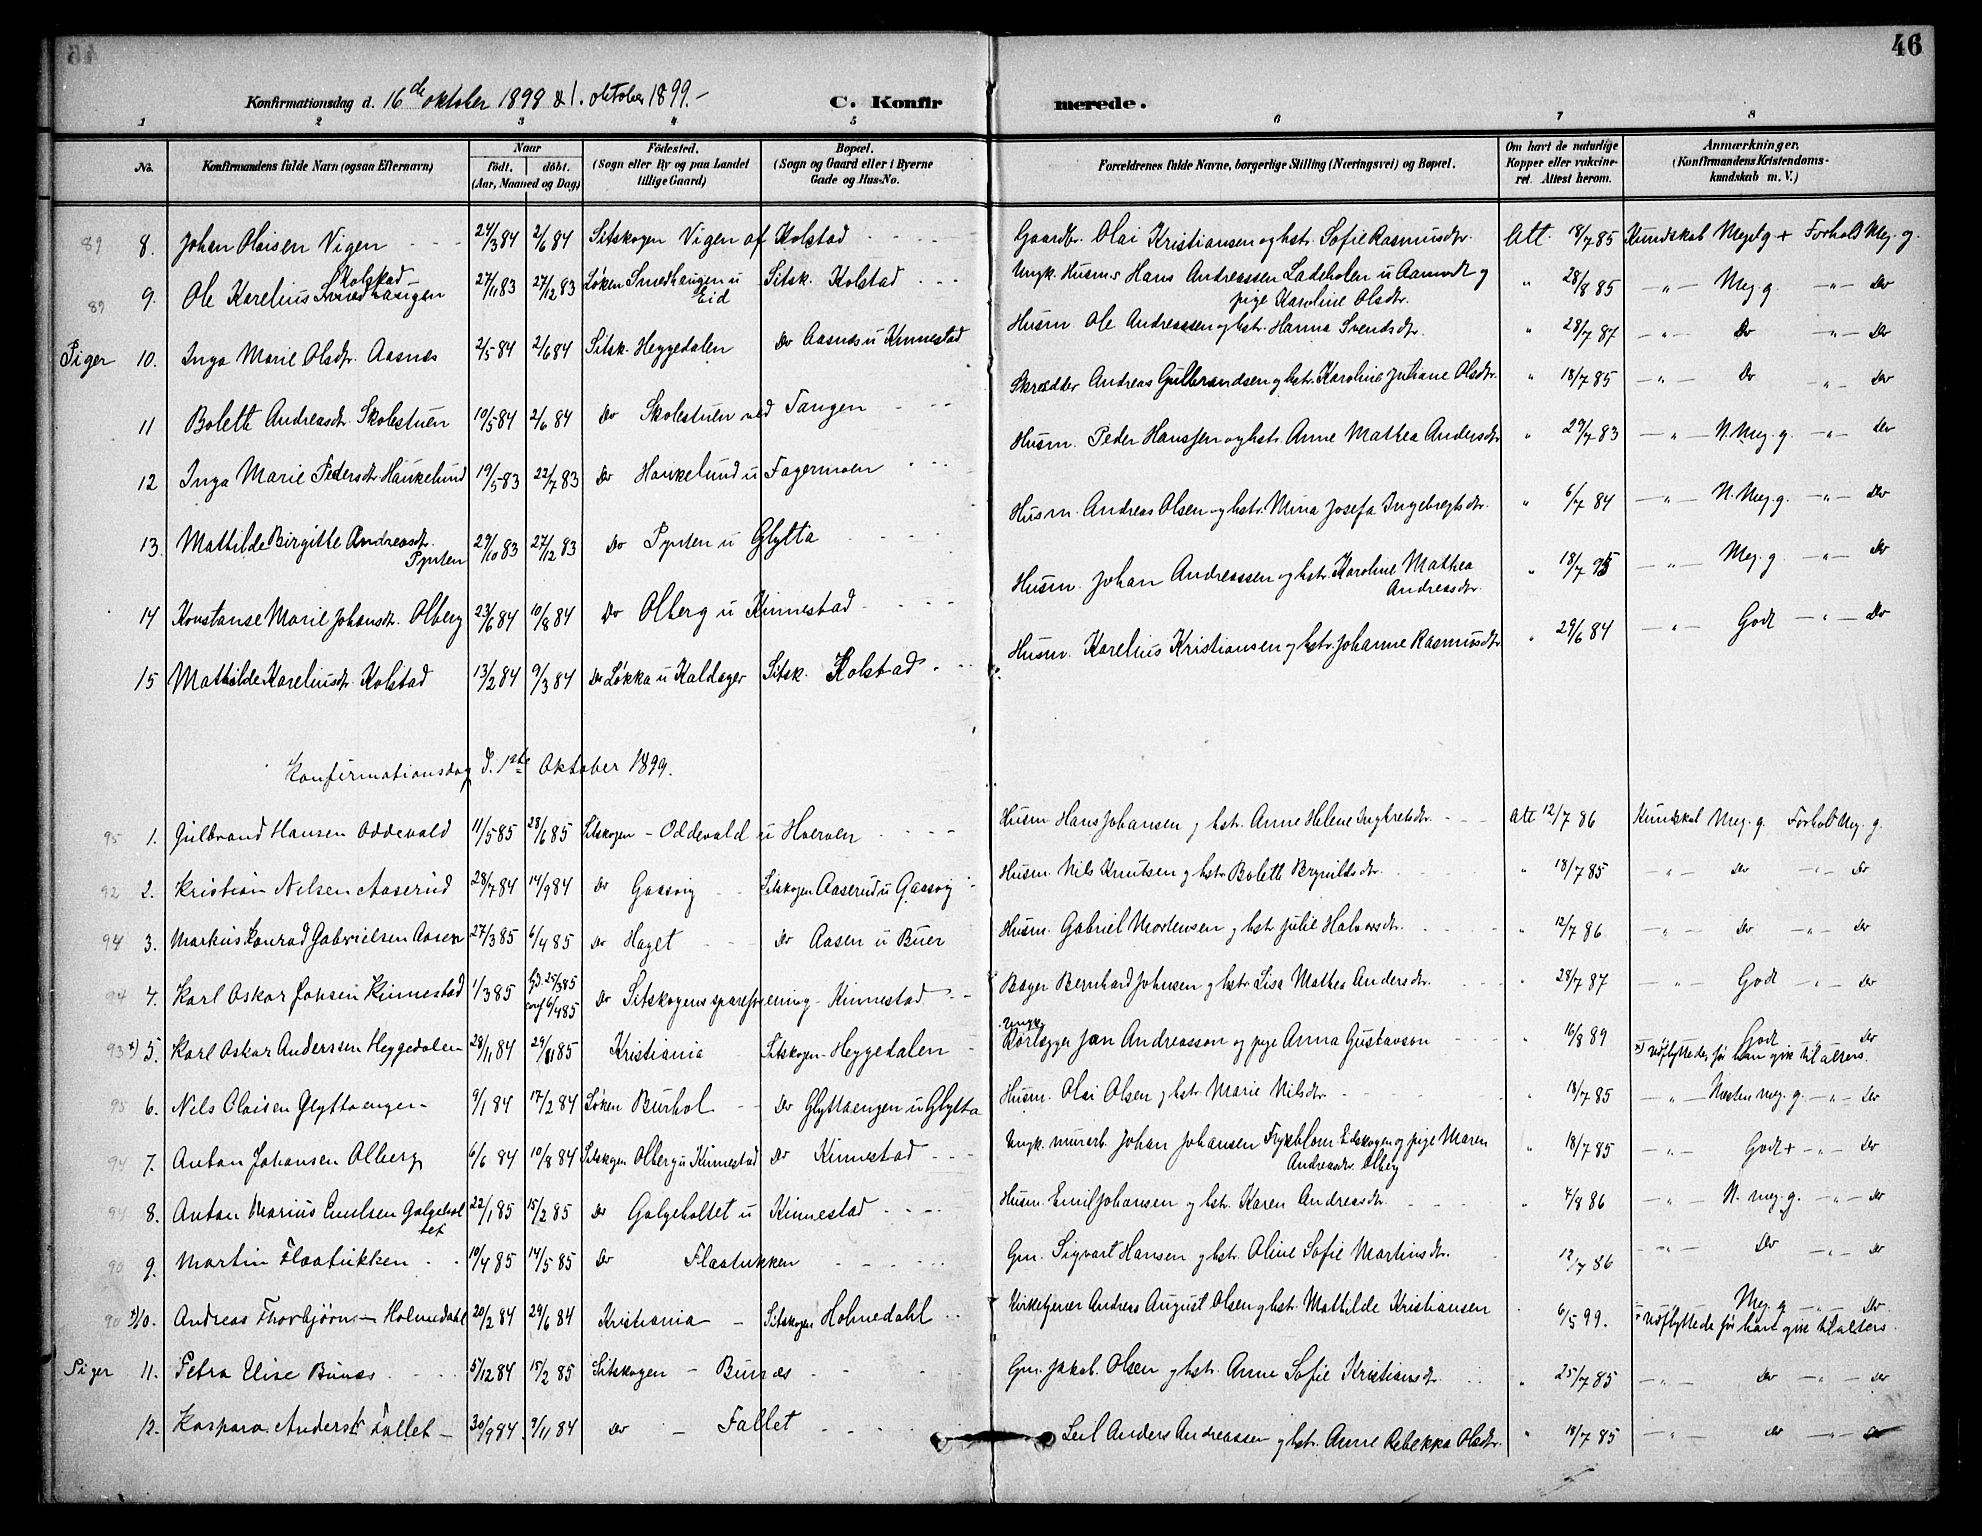 46
Konfirmationsdag d. 16de oktober 1898 & 1. oktober 1899.- C. Konfir merede.
1 2 3 4 5 6 7 8
No. Konfirmandens fulde Navn (ogsaa Efternavn) Naar født. døbt. (Aar, Maaned og Dag) Fødested. (Sogn eller By og paa Landet tillige Gaard) Bopæl. (Sogn og Gaard eller i Byerne Gade og Hus-No. Forældrenes fulde Navne, borgerlige Stilling (Næringsvei) og Bopæl. Om havt de naturlige Kopper eller vakcineret. Attest herom. Anmærkninger. (Konfirmandens Kristendomskundskab m. V.)
89 8. Johan Olaisen Vigen 24/3 84 2/6 84 Sitskogen Vigen af Kolstad Gaardbr. Olai Kristiansen og hstr. Sofie Rasmusdtr. Att. 18/7 85 Kundskab Meget g + Forhold Meg. g.
89 9. Ole Karelius Smedhaugen Kolstad 27/11 83 27/12 83 Løken Smedhaugen u Eid Sitsk. Kolstad Ungk. Husm.s Hans Andreassen Ladeholen u Aamodt og pige Karoline Olsdtr. " 28/8 85 —"— Meg. g. —"— Do
Piger 10. Inga Marie Olsdtr. Aasnæs 2/5 84 2/6 84 Sitsk. Heggedalen Do Aasnæs u Kinnestad Husm. Ole Andreassen og hstr. Hanna Svendsdtr. " 28/7 87 —"— Do —"— Do
11 Bolette Andreasdtr. Skolestuen 10/5 84 2/6 84 Do Skolestuen ved Tangen Skrædder Andreas Gulbrandsen og hstr. Karoline Juliane Olsdtr. " 18/7 85 —"— Do —"— Do
12 Inga Marie Pedersdtr Haukelund 19/5 83 22/7 83 Do Haukelund u Fagermoen Husm. Peder Hanssen og hstr. Anne Mathea Andersdtr " 29/7 83 —"— N. Meg. g. —"— Do
13. Mathilde Birgitte Andreasdtr. Pynten 29/10 83 27/12 83 Do Pynten u Glytta Husm. Andreas Olsen og hstr. Mina Josefa Ingebregtsdtr. " 6/7 84 —"— N. Meg. g. —"— Do
14 Konstanse Marie Johansdtr. Olberg 23/6 84 10/8 84 Do Olberg u Kinnestad Husm. Johan Andreassen og hstr. Karoline Mathea Andreasdtr. " 18/7 85 —"— Meg. g —"— Do
15 Mathilde Kareliusdtr. Kolstad 13/2 84 9/3 84 Do Løkka u Kaldager Sitsk. Kolstad Husm. Karelius Kristiansen og hstr. Johanne Rasmusdtr " 29/6 84 —"— Godt —"— Do
Konfirmationsdag d. 1ste Oktober 1899.
95 1. Gulbrand Hansen Oddevald 11/5 85 28/6 85 Sitskogen - Oddevald u Hverven Husm Hans Johansen g hstr. Anne Helene Ingbretsdtr. Att 12/7 86 Kundskab Meg. g. Forhold Meg. g.
92 2. Kristian Nilsen Aaserud 28/7 84 14/9 84 Do Gaasvig Sitskogen Aaserud u Gaasvig Husm. Nils Knutsen g hstr Bolette Brynildsdtr. " 18/7 85 —"— Do —"— Do
94 3. Markus Konrad Gabrielsen Aasen 27/3 85 6/4 85 Do Haget Do Aasen u Buer Husm. Gabriel Mortensen g hstr. Julie Halvorsdtr. " 12/7 86 —"— Do —"— Do
94 4. Karl Oskar Johsen Kinnestad 1/3 85 hjd. 25/3 85 conf 6/4 85 Do Sitskogens spareforening - Kinnestad Bager Bernhard Johnsen g hstr. Lisa Mathea Andersdtr. " 28/7 87 —"— Godt —"— Do
93 x) 5. Karl Oskar Anderssen Heggedalen 28/11 84 29/11 85 Kristiania Sitskogen - Heggedalen Ungk. Jan Andreasson og pige Anna Gustavson 16/8 89 Godt Do x) Udflyttede, før han gik til alters.
95 6. Nils Olaisen Glyttaengen 9/1 84 17/2 84 Løken Burhol Do Glyttaengen u Glytta Husm. Olai Olsen g hstr. Marie Nilsdtr. " 18/7 85 —"— Næsten meg. g. —"— Do
94 7. Anton Johansen Olberg 6/6 84 10/8 84 Sitskogen Olberg u Kinnestad Do Kinnestad Ungk. murarb. Johan Johansen Frykblom Eidskogen og pige Maren Andreasdtr. Olberg " 18/7 85 —"— Godt + —"— Do
94 8. Anton Marius Emilsen Galgeholtet 22/1 85 15/2 85 Do Galgeholtet u Kinnestad Husm. Emil Johansen g hstr. Karen Andreasdtr. " 4/8 86 —"— N. meg. g. —"— Do
90 9. Martin Flaatukken 10/4 85 14/5 85 Do Flaatukken Gm. Sigvart Hansen g hstr. Oline Sofie Martinsdtr. 12/7 86 —"— Do —"— Do
90 x) 10. Andreas Thorbjørn Holmedahl 20/2 84 29/6 84 Kristiania Sitskogen Holmedahl Kirketjener Andreas August Olsen g hstr. Mathilde Kristiansen " 6/5 99. Meg. g —"— Do x Udflyttede før han gik til alters.
Piger 11. Petra Elise Bunæs 5/12 84 15/2 85 Sitskogen - Bunæs Gm. Jakob Olsen g hstr. Anne Sofie Kristiansdtr. " 25/7 85 —"— Do —"— Do
12. Kaspara Andersdtr Fallet 30/9 84 9/11 84 Do - Fallet Leil. Anders Andreassen g hstr. Anne Rebekka Olsdtr. " 18/7 85 —"— Do —"— Do